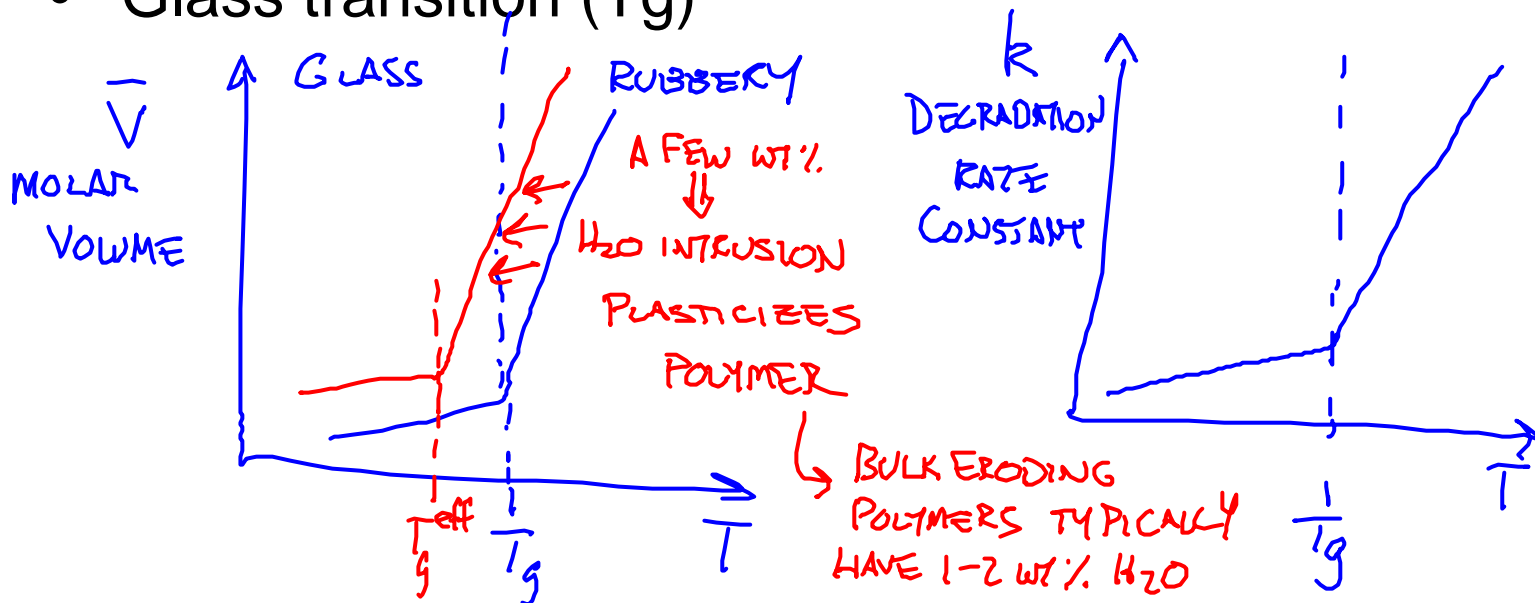 • Glass transition (Tg)
V̅
MOLAR
VOLUME
GLASS
RUBBERY
A FEW WT%
⇓
H2O INTRUSION
PLASTICIZES
POLYMER
BULK ERODING
POLYMERS TYPICALLY
HAVE 1-2 WT% H2O
Tg eff
Tg
T
k
DEGRADATION
RATE
CONSTANT
Tg
T